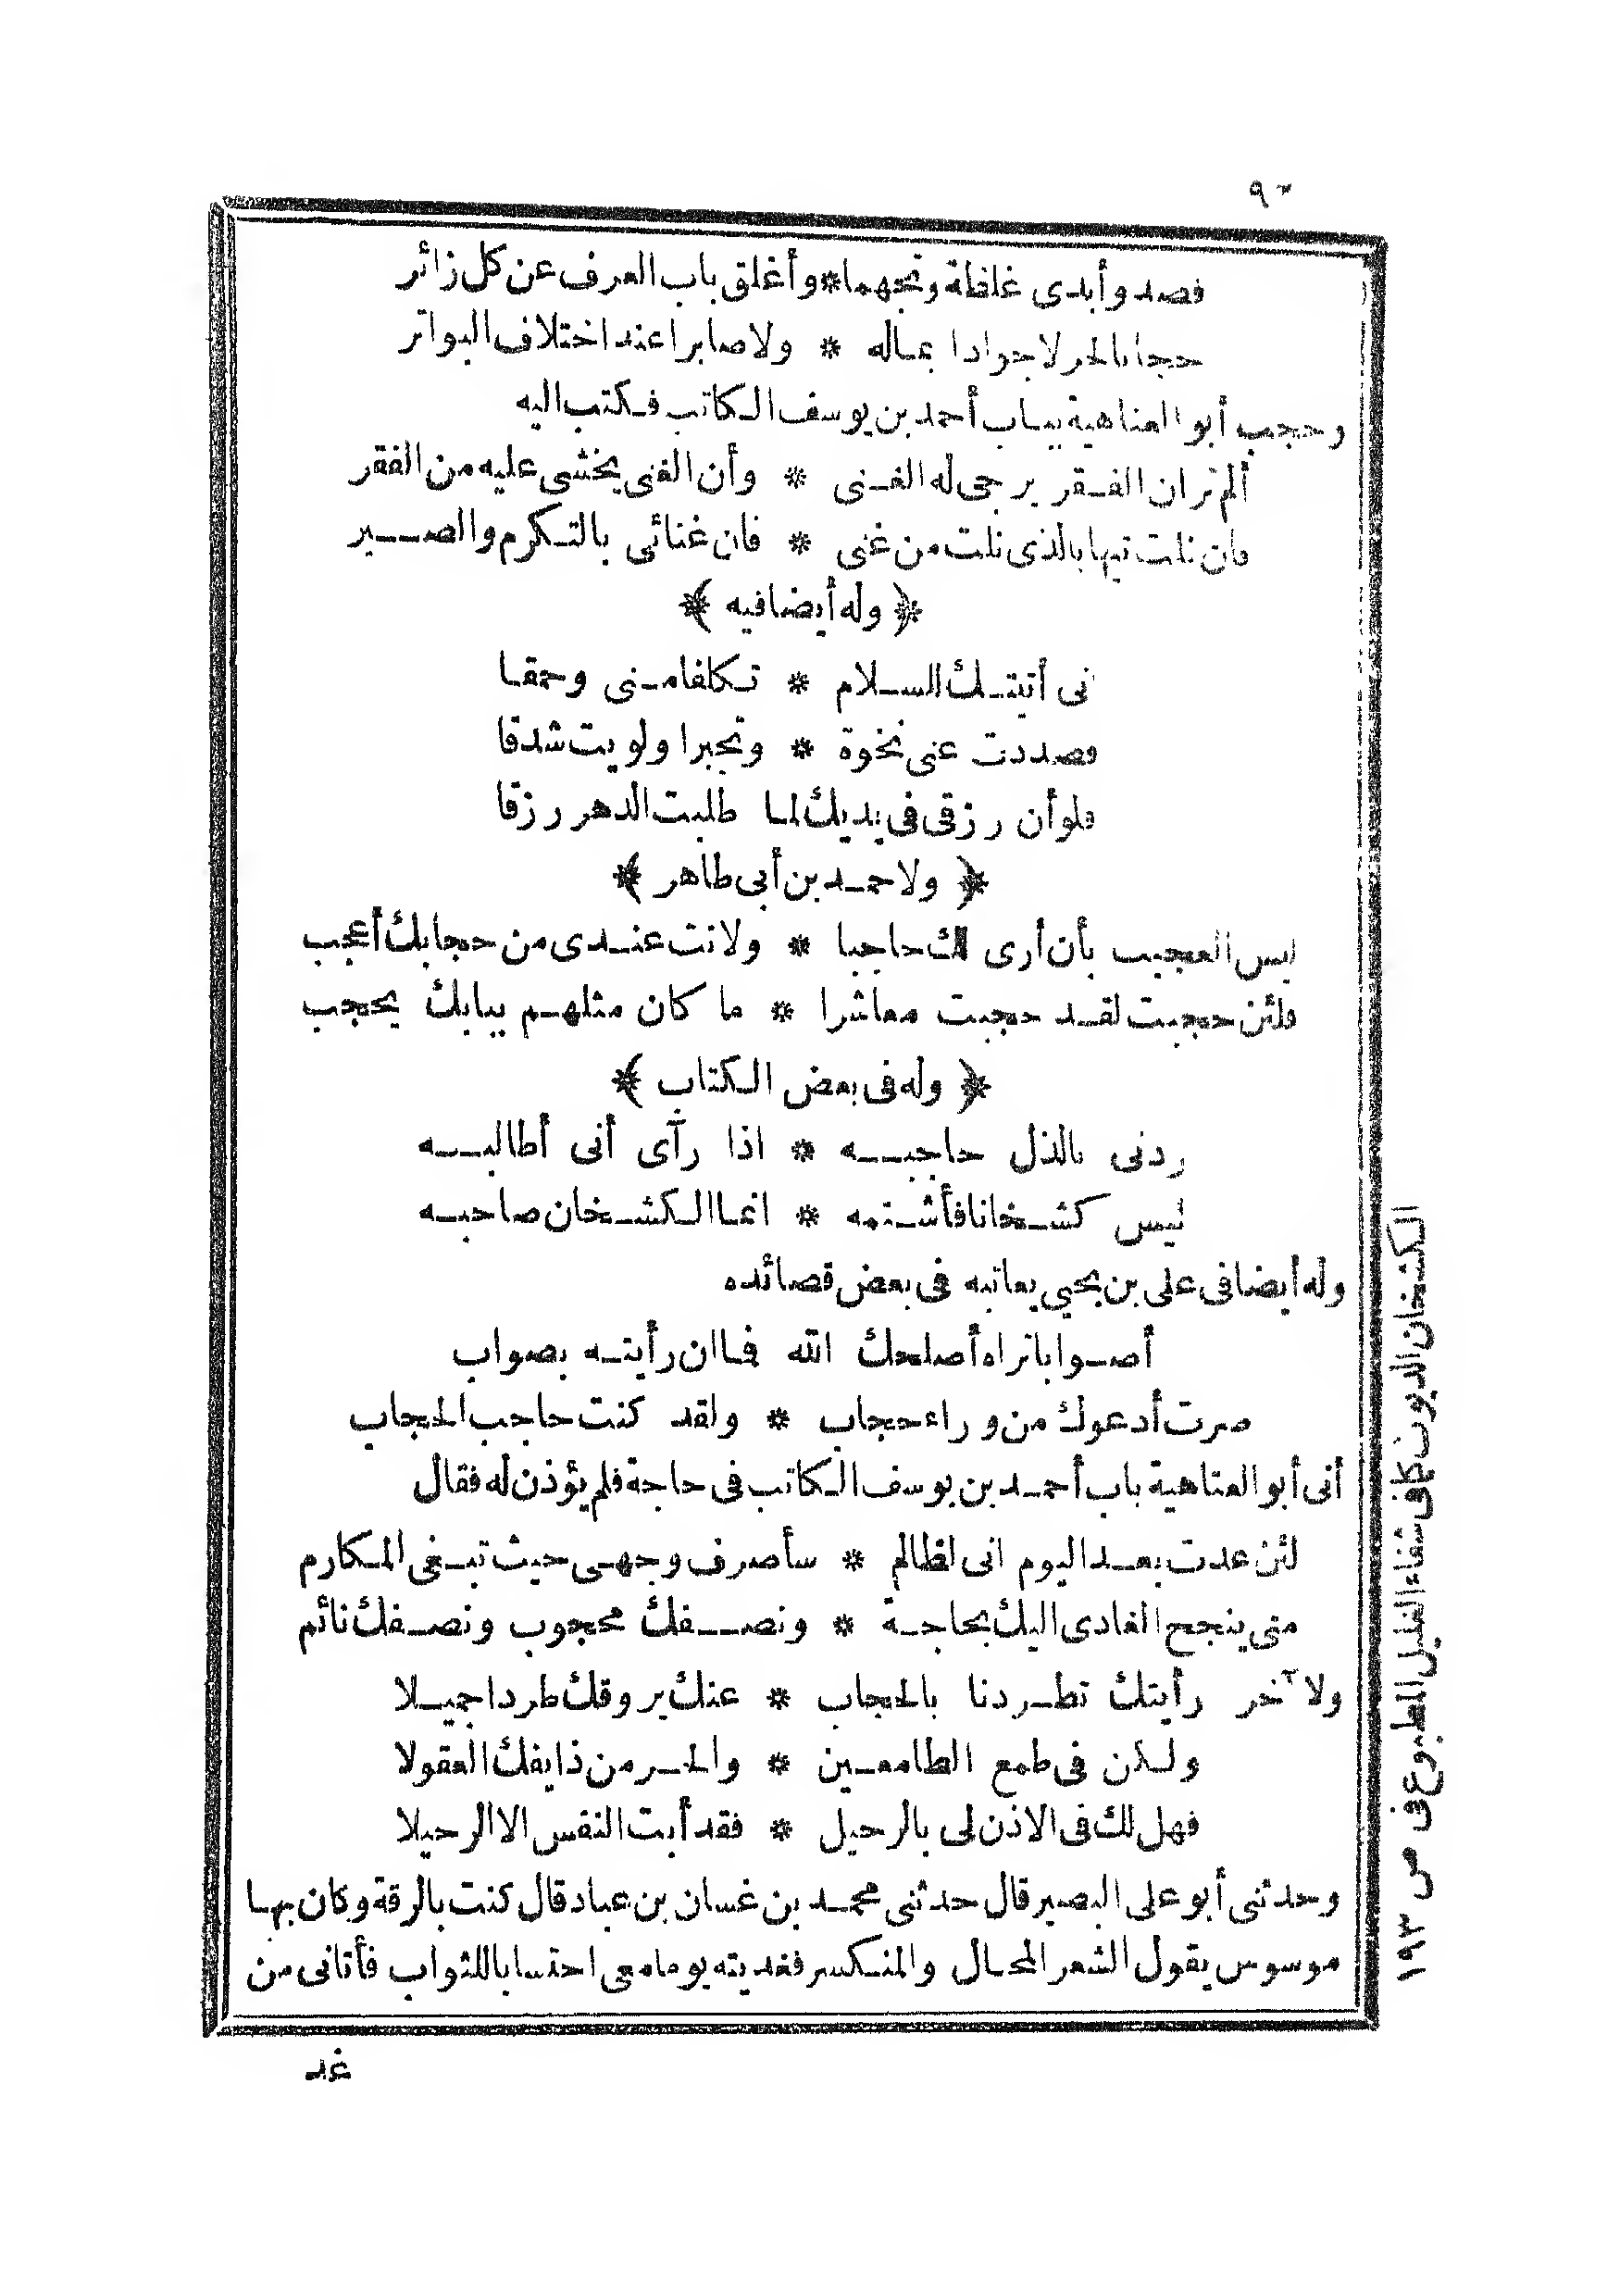 فصد وأبدى غلظة وتجهما * وأغلق باب العرف عن كل زائر
حجابا لحر لا جوادا بماله * ولا صابرا عند اختلاف البواتر
وحجب أبو العتاهية ببـاب أحمد بن يوسف الكاتب فكتب اليه
ألم تر ان الفقر يرجى له الغنى * وأن الغنى يخشى عليه من الفقر
فان نلت تيها بالذى نلت من غنى * فان غنائى بالتكرم والصبر
﴿ وله أيضا فيه ﴾
انى أتيتك للسلام * تكلفا منى وحمقا
فصددت عنى نخوة * وتجبرا ولويت شدقا
فلو أن رزقى فى يديك لما طلبت الدهر رزقا
﴿ ولاحمد بن أبى طاهر ﴾
ليس العجيب بأن أرى لك حاجبا * ولانت عندى من حجابك أعجب
فلئن حجبت لقد حجبت معاشرا * ما كان مثلهم ببابك يحجب
﴿ وله فى بعض الكتاب ﴾
ردنى بالذل حاجبه * اذا رآى أنى أطالبه
ليس كشخانا فأشتمه * انما الكشخان صاحبه
وله أيضا فى على بن يحيى يعاتبه فى بعض قصائده
أصوابا تراه أصلحك الله فما ان رأيته بصواب
صرت أدعوك من وراء حجاب * ولقد كنت حاجب الحجاب
أتى أبو العتاهية باب أحمد بن يوسف الكاتب فى حاجة فلم يؤذن له فقال
لئن عدت بعد اليوم انى لظالم * سأصرف وجهى حيث تبغى المكارم
متى ينجح الغادى اليك بحاجة * ونصفك محجوب ونصفك نائم
ولآخر رأيتك تطردنا بالحجاب * عنك يروقك طردا جميلا
ولكن فى طمع الطامعين * والحر من ذا يفك العقولا
فهل لك فى الاذن لى بالرحيل * فقد أبت النفس الا الرحيلا
وحدثنى أبو على البصير قال حدثنى محمد بن غسان بن عباد قال كنت بالرقة وكان بها
موسوس يقول الشعر المحال والمنكسر فغديته يوما معى احتسابا للثواب فأتانى من
غد
الكشخان الديوث كما فى شفاء الغليل المطبوع فى ص ١٩٣